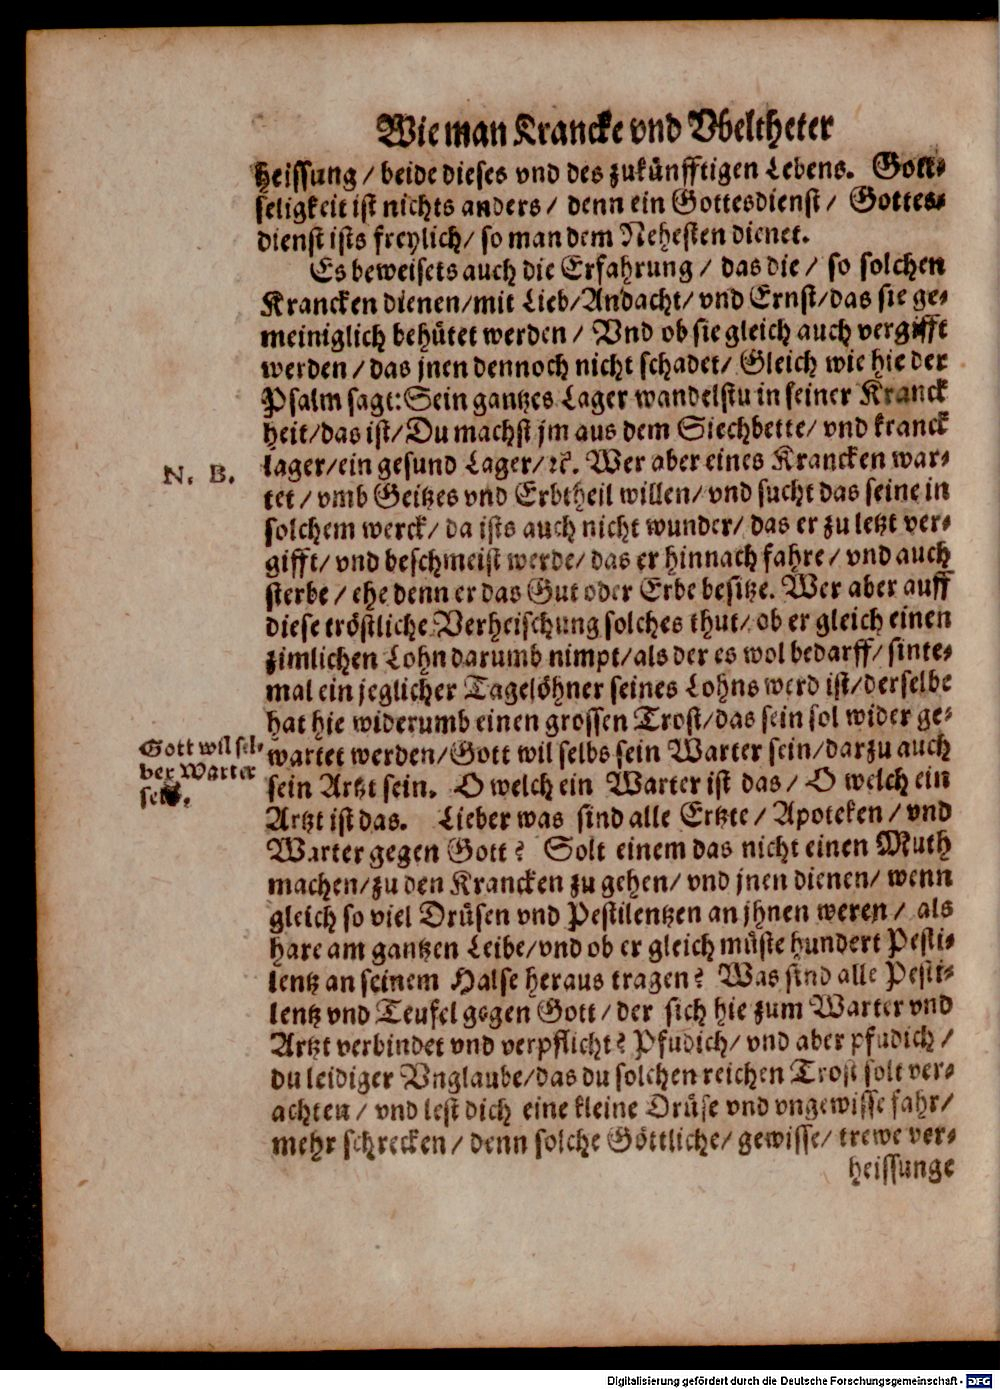 Wie man Krancke vnd Vbeltheter
heissung / beide dieses vnd des zukünfftigen Lebens. Gott-
seligkeit ist nichts anders / denn ein Gottesdienst / Gottes-
dienst ists freylich / so man dem Nehesten dienet.
Es beweisets auch die Erfahrung / das die / so solchen
Krancken dienen / mit Lieb / Andacht / vnd Ernst / das sie ge-
meiniglich behütet werden / Vnd ob sie gleich auch vergifft
werden / das jnen dennoch nicht schadet / Gleich wie hie der
Psalm sagt: Sein gantzes Lager wandelstu in seiner Kranck
heit / das ist / Du machst jm aus dem Siechbette / vnd kranck
lager / ein gesund Lager / ꝛc. Wer aber eines Krancken war-
N. B.
tet / vmb Geitzes vnd Erbtheil willen / vnd sucht das seine in
solchem werck / da ists auch nicht wunder / das er zu letzt ver-
gifft / vnd beschmeist werde / das er hinnach fahre / vnd auch
sterbe / ehe denn er das Gut oder Erbe besitze. Wer aber auff
diese tröstliche Verheischung solches thut / ob er gleich einen
zimlichen Lohn darumb nimpt / als der es wol bedarff / sinte-
mal ein jeglicher Tagelöhner seines Lohns werd ist / derselbe
hat hie widerumb einen grossen Trost / das sein sol wider ge-
wartet werden / Gott wil selbs sein Warter sein / darzu auch
Gott wil sel-
ber Warter
sein.
sein Artzt sein. O welch ein Warter ist das / O welch ein
Artzt ist das. Lieber was sind alle Ertzte / Apoteken / vnd
Warter gegen Gott? Solt einem das nicht einen Muth
machen / zu den Krancken zu gehen / vnd jnen dienen / wenn
gleich so viel Drüsen vnd Pestilentzen an jhnen weren / als
hare am gantzen Leibe / vnd ob er gleich müste hundert Pesti-
lentz an seinem Halse heraus tragen? Was sind alle Pesti-
lentz vnd Teufel gegen Gott / der sich hie zum Warter vnd
Artzt verbindet vnd verpflicht? Pfudich / vnd aber pfudich /
du leidiger Vnglaube / das du solchen reichen Trost solt ver-
achten / vnd lest dich eine kleine Drüse vnd vngewisse fahr /
mehr schrecken / denn solche Göttliche / gewisse / trewe ver-
heissunge
Digitalisierung gefördert durch die Deutsche Forschungsgemeinschaft - DFG